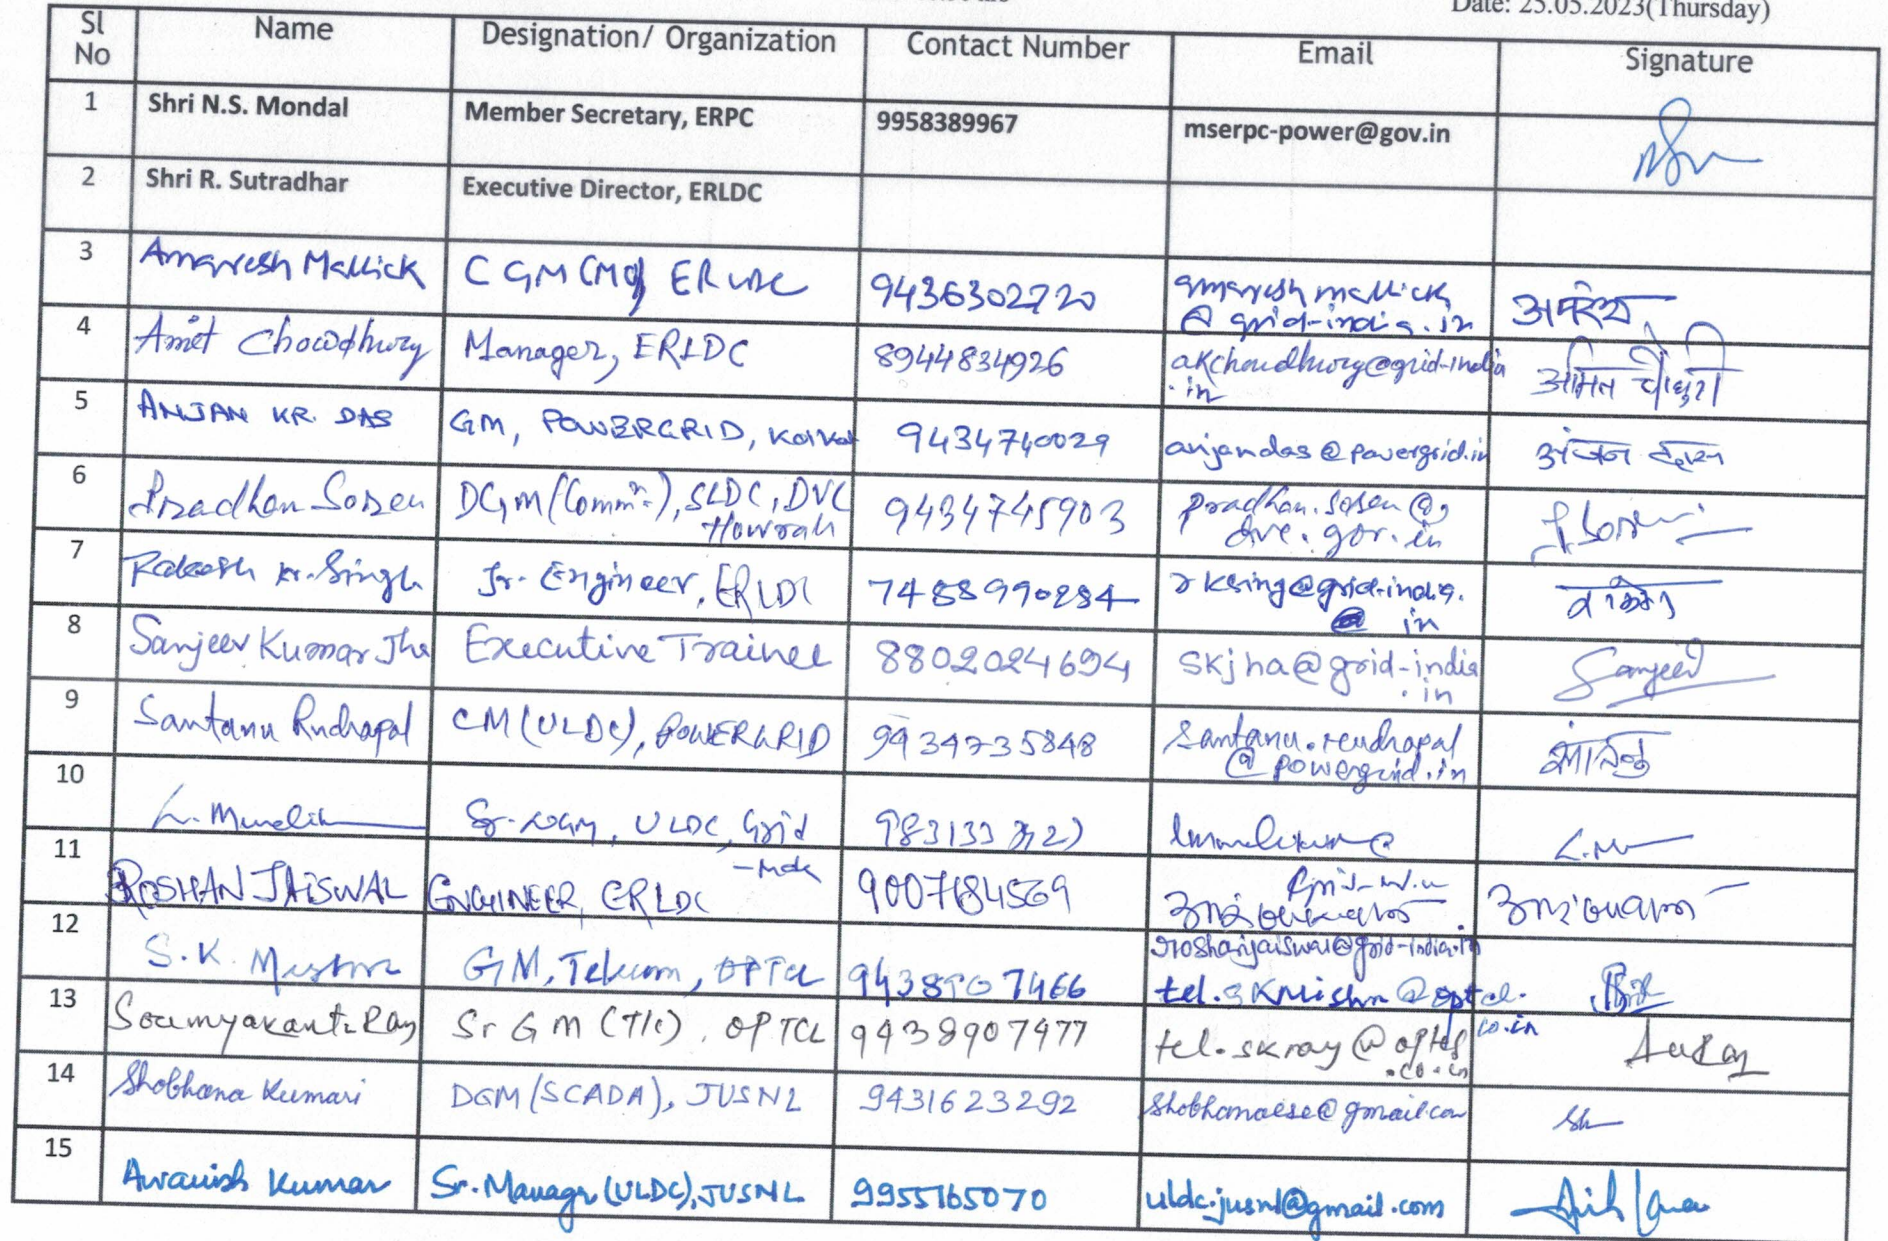 Date: 25.05.2023(Thursday)
Sl No Name Designation/ Organization Contact Number Email Signature
1 Shri N.S. Mondal Member Secretary, ERPC 9958389967 mserpc-power@gov.in
2 Shri R. Sutradhar Executive Director, ERLDC
3 Amaresh Mallick CGM ERLDC 9436302720 amareshmallick
@grid-india.in अमरेश
4 Amit Chowdhury Manager, ERLDC 8944834926 akchoudhury@grid-india
.in अमित चौधुरी
5 ANJAN KR. DAS GM, POWERGRID, Kolkat 9434740029 anjandas@powergrid.in अंजन दास
6 Pradhan Soren DGM(Commn.), SLDC, DVC
Howrah 9434745903 pradhan.soren@
dvc.gov.in
7 Rakesh Kr. Singh Jr. Engineer, ERLDC 7488990284 rksing@grid-india.
in राकेश
8 Sanjeev Kumar Jha Executive Trainee 8802024694 skjha@grid-india
.in Sanjeev
9 Santanu Rudrapal CM(ULDC), POWERGRID 9434735848 santanu.rudrapal
@powergrid.in
10 L. Muralik ULDC, Grid
11 ROSHAN JAISWAL ENGINEER, ERLDC 9007184569
roshanjaiswal@grid-india.in
12 S.K. Mishra GM, Telecom, OPTCL 9438907466 tel.skmishra@optcl.
co.in
13 Soumyakanta Ray Sr GM (T/C), OPTCL 9438907477 tel.skray@optcl
.co.in
14 Shobhana Kumari DGM(SCADA), JUSNL 9431623292 shobhanaese@gmail.com Sh
15 Awanish Kumar Sr. Managr (ULDC), JUSNL 9955165070 uldc.jusnl@gmail.com